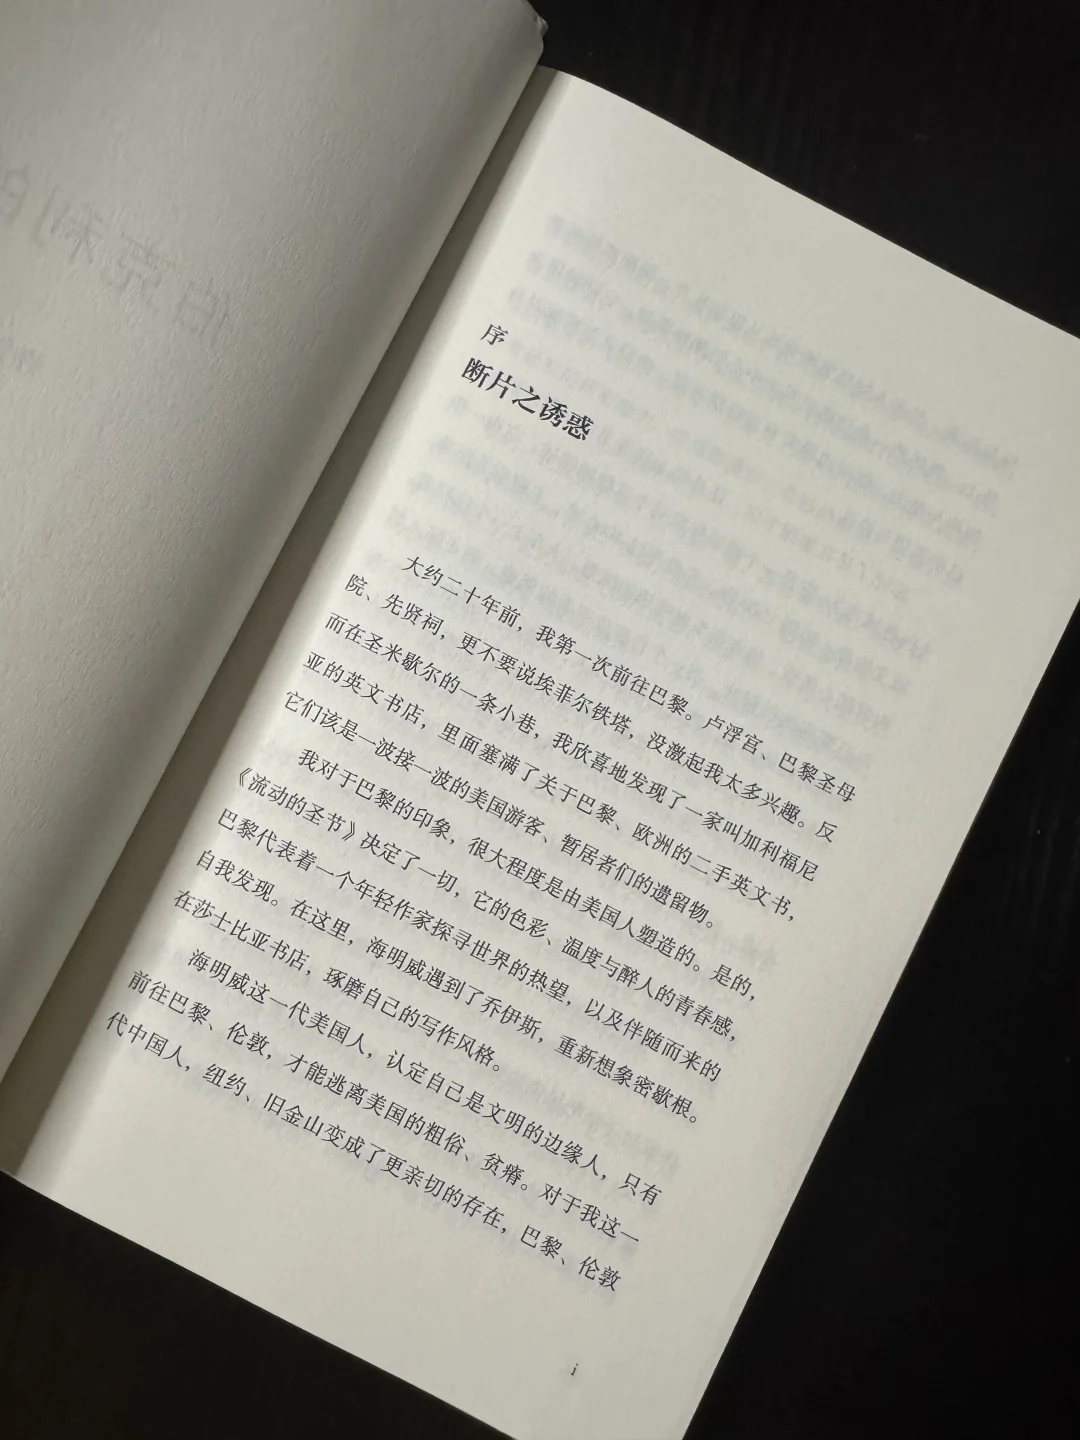 序
断片之诱惑
大约二十年前，我第一次前往巴黎。卢浮宫、巴黎圣母
院、先贤祠，更不要说埃菲尔铁塔，没激起我太多兴趣。反
而在圣米歇尔的一条小巷，我欣喜地发现了一家叫加利福尼
亚的英文书店，里面塞满了关于巴黎、欧洲的二手英文书，
它们该是一波接一波的美国游客、暂居者们的遗留物。
我对于巴黎的印象，很大程度是由美国人塑造的。是的，
《流动的圣节》决定了一切，它的色彩、温度与醉人的青春感，
巴黎代表着一个年轻作家探寻世界的热望，以及伴随而来的
自我发现。在这里，海明威遇到了乔伊斯，重新想象密歇根。
在莎士比亚书店，琢磨自己的写作风格。
海明威这一代美国人，认定自己是文明的边缘人，只有
前往巴黎、伦敦，才能逃离美国的粗俗、贫瘠。对于我这一
代中国人，纽约、旧金山变成了更亲切的存在，巴黎、伦敦
i